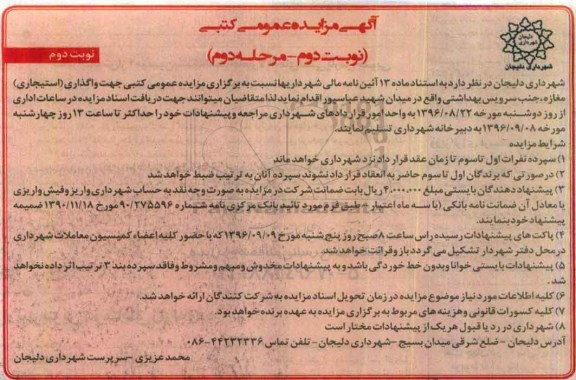 آگهی مزایده عمومی کتبی
(نوبت دوم - مرحله دوم)
نوبت دوم
شهرداری دلیجان
شهرداری دلیجان در نظر دارد به استناد ماده ۱۳ آئین نامه مالی شهرداریها نسبت به برگزاری مزایده عمومی کتبی جهت واگذاری (استیجاری)
مغازه، جنب سرویس بهداشتی واقع در میدان شهید عباسپور اقدام نماید لذا متقاضیان میتوانند جهت دریافت اسناد مزایده در ساعات اداری
از روز دوشنبه مورخه ۱۳۹۶/۰۸/۲۲ به واحد امور قراردادهای شهرداری مراجعه و پیشنهادات خود را حداکثر تا ساعت ۱۳ روز چهارشنبه
مورخه ۱۳۹۶/۰۹/۰۸ به دبیرخانه شهرداری تسلیم نمایند.
شرایط مزایده
۱) سپرده نفرات اول تا سوم تا زمان عقد قرارداد نزد شهرداری خواهد ماند
۲) در صورتی که برندگان اول تا سوم حاضر به انعقاد قرارداد نشوند سپرده آنان به ترتیب ضبط خواهد شد
۳) پیشنهاد دهندگان بایستی مبلغ ۴.۰۰۰.۰۰۰ ریال بابت ضمانت شرکت در مزایده به صورت وجه نقد به حساب شهرداری واریز و فیش واریزی
یا معادل آن ضمانت نامه بانکی (با سه ماه اعتبار - طبق فرم مورد تائید بانک مرکزی نامه شماره ۹۰/۲۷۵۵۹۶ مورخ ۱۳۹۰/۱۱/۱۸) ضمیمه
پیشنهاد خود بنمایند.
۴) پاکت های پیشنهادات رسیده راس ساعت ۸ صبح روز پنج شنبه مورخ ۱۳۹۶/۰۹/۰۹ که با حضور کلیه اعضاء کمیسیون معاملات شهرداری
در محل دفتر شهردار تشکیل می گردد باز و قرائت خواهد شد.
۵) پیشنهادات بایستی خوانا و بدون خط خوردگی باشد و به پیشنهادات مخدوش و مبهم و مشروط و فاقد سپرده بند ۳ ترتیب اثر داده نخواهد
شد.
۶) کلیه اطلاعات مورد نیاز موضوع مزایده در زمان تحویل اسناد مزایده به شرکت کنندگان ارائه خواهد شد.
۷) کلیه کسورات قانونی و هزینه های مربوط به برگزاری مزایده به عهده برنده خواهد بود.
۸) شهرداری در رد یا قبول هر یک از پیشنهادات مختار است
آدرس دلیجان - ضلع شرقی میدان بسیج - شهرداری دلیجان - تلفن تماس ۴۴۲۳۲۳۳۶-۰۸۶
محمد عزیزی - سرپرست شهرداری دلیجان